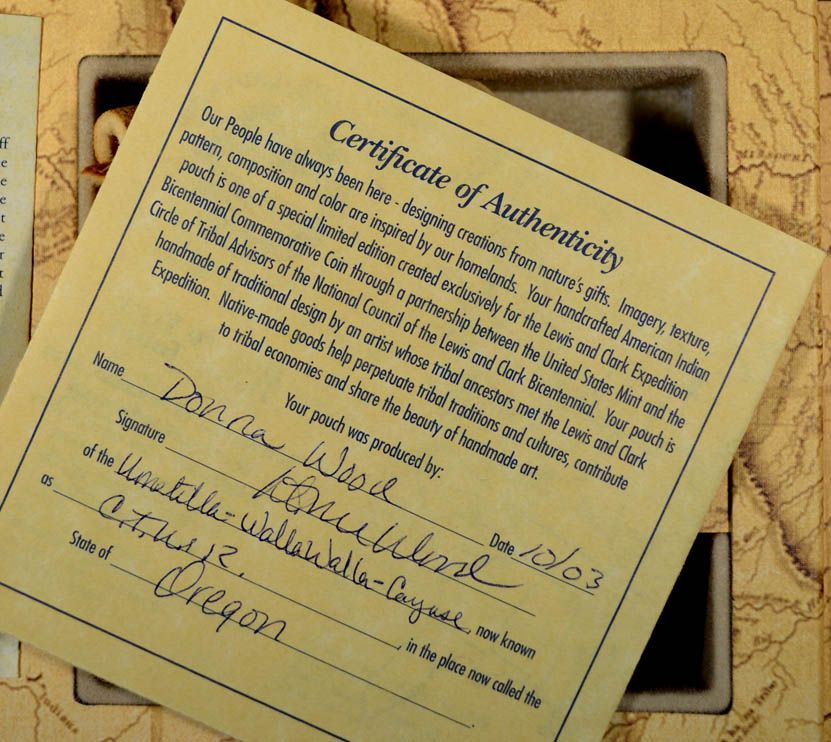 Certificate of Authenticity
Our People have always been here - designing creations from nature's gifts. Imagery, texture,
pattern, composition and color are inspired by our homelands. Your handcrafted American Indian
pouch is one of a special limited edition created exclusively for the Lewis and Clark Expedition
Bicentennial Commemorative Coin through a partnership between the United States Mint and the
Circle of Tribal Advisors of the National Council of the Lewis and Clark Bicentennial. Your pouch is
handmade of traditional design by an artist whose tribal ancestors met the Lewis and Clark
Expedition. Native-made goods help perpetuate tribal traditions and cultures, contribute
to tribal economies and share the beauty of handmade art.
Your pouch was produced by:
Name Donna Wood
Signature Donna Wood Date 10/03
of the Umatilla-WallaWalla-Cayuse, now known
as C.T.U.I.R. , in the place now called the
State of Oregon .
ff
e
e
e
t
e
r
t
d
Missouri
Indiana